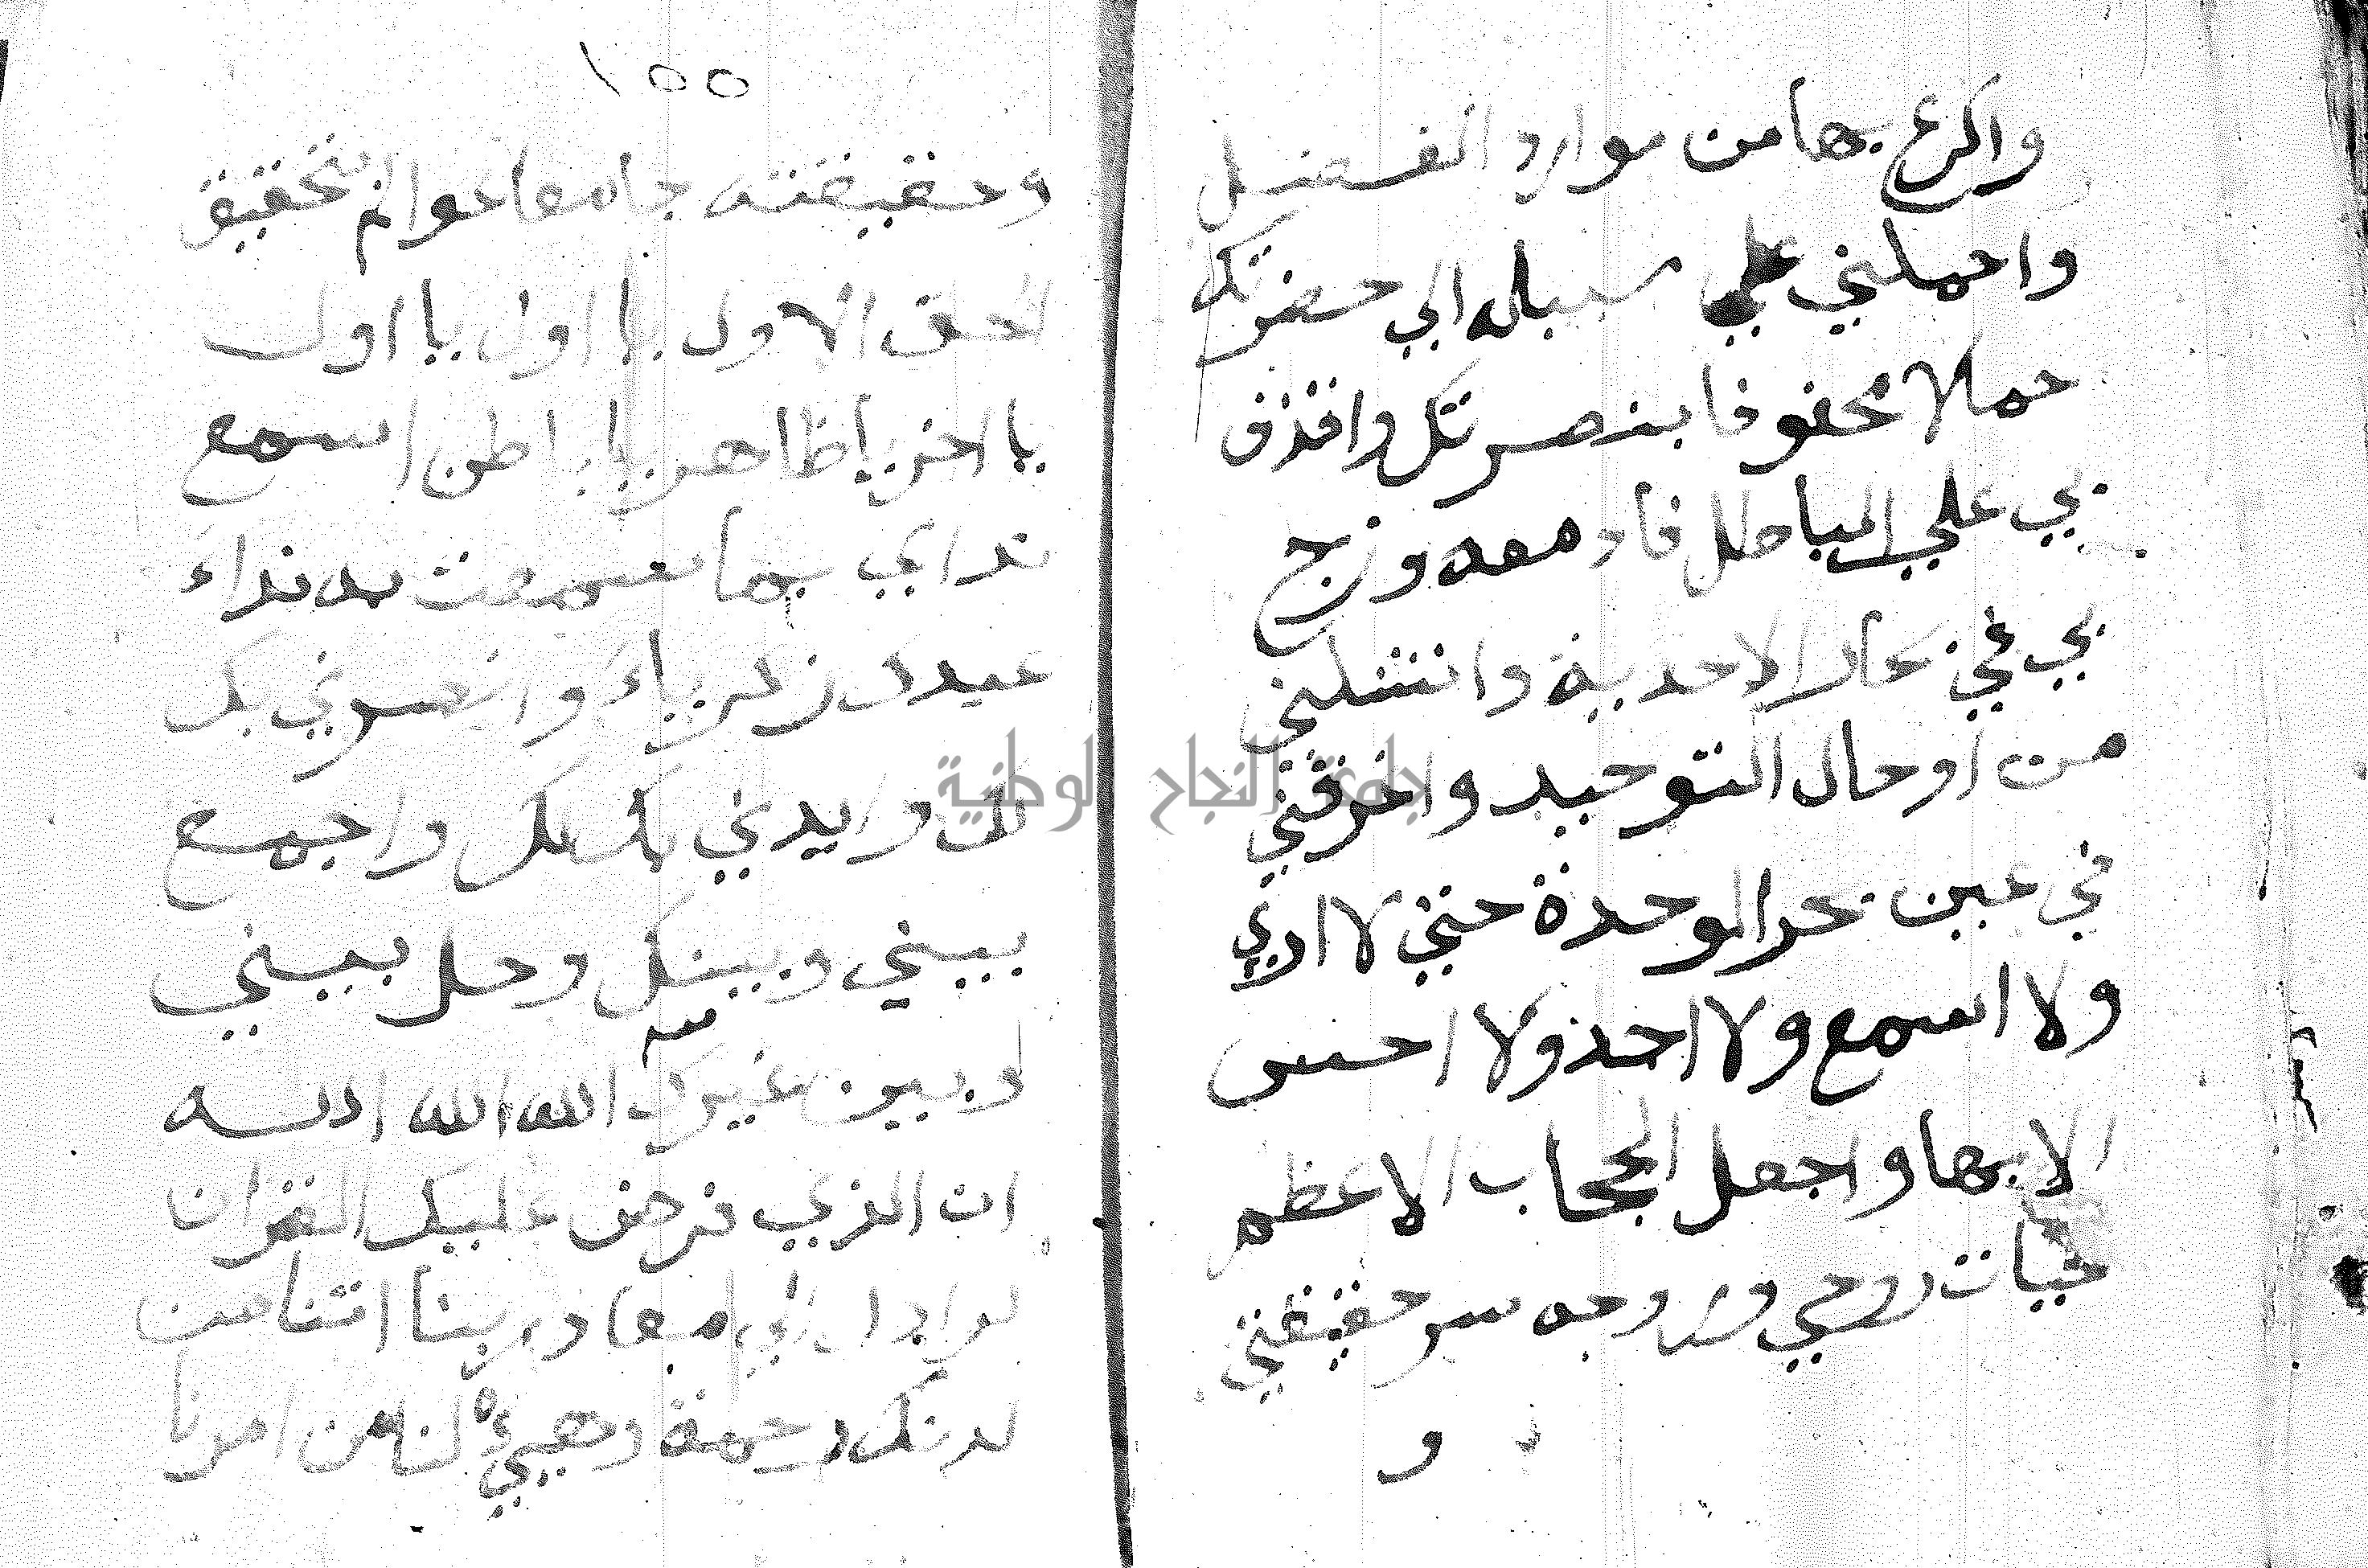 واكرع بها من موارد الفضل
واحملني علي سبيله الي حضرتك
حملا محفوفا بنصرتك واقذف
بي علي الباطل فادمغه وزج
بي في بحار الاحدية وانشلني
من اوحال التوحيد واغرقني
في عين بحر الوحدة حتي لا اري
ولا اسمع ولا اجد ولا احس
الا بها واجعل الحجاب الاعظم
حيات روحي وروحه سر حقيقتي
و
١٥٥
وحقيقته جامع عوالم بتحقيق
الحق الاول يا اول يا اول
يا اخر يا ظاهر يا باطن اسمع
نداي بما سمعت به نداء
عبدك زكرياء وانصرني بك
لك وايدني بك لك واجمع
بيني وبينك وحل بيني
وبين غيرك الله الله الله
ان الذي فرض عليك القران
لرادك الي معاد ربنا اتنا من
لدنك رحمة وهيئ لنا من امرنا
جامعة النجاح الوطنية